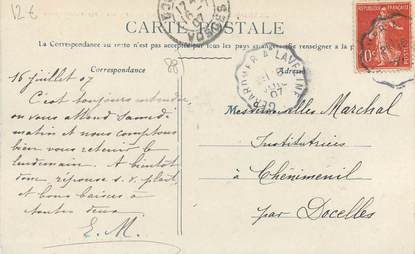 12 €
CARTE POSTALE
La Correspondance au recto n'est pas acceptée par tous les pays étrangers (se renseigner à la
Correspondance
Adresse
REPUBLIQUE FRANÇAISE
10c
GERARDMER À LAVELINE
16 juillet 07
C'est toujours entendu,
on vous attend Samedi
matin et nous comptons
bien vous retenir le
lendemain. A bientôt
donc réponse s. v. plait
et bons baisers à
toutes deux
E. M.
Mesdemoiselles Marchal
Institutrices
à Chéniménil
par Docelles